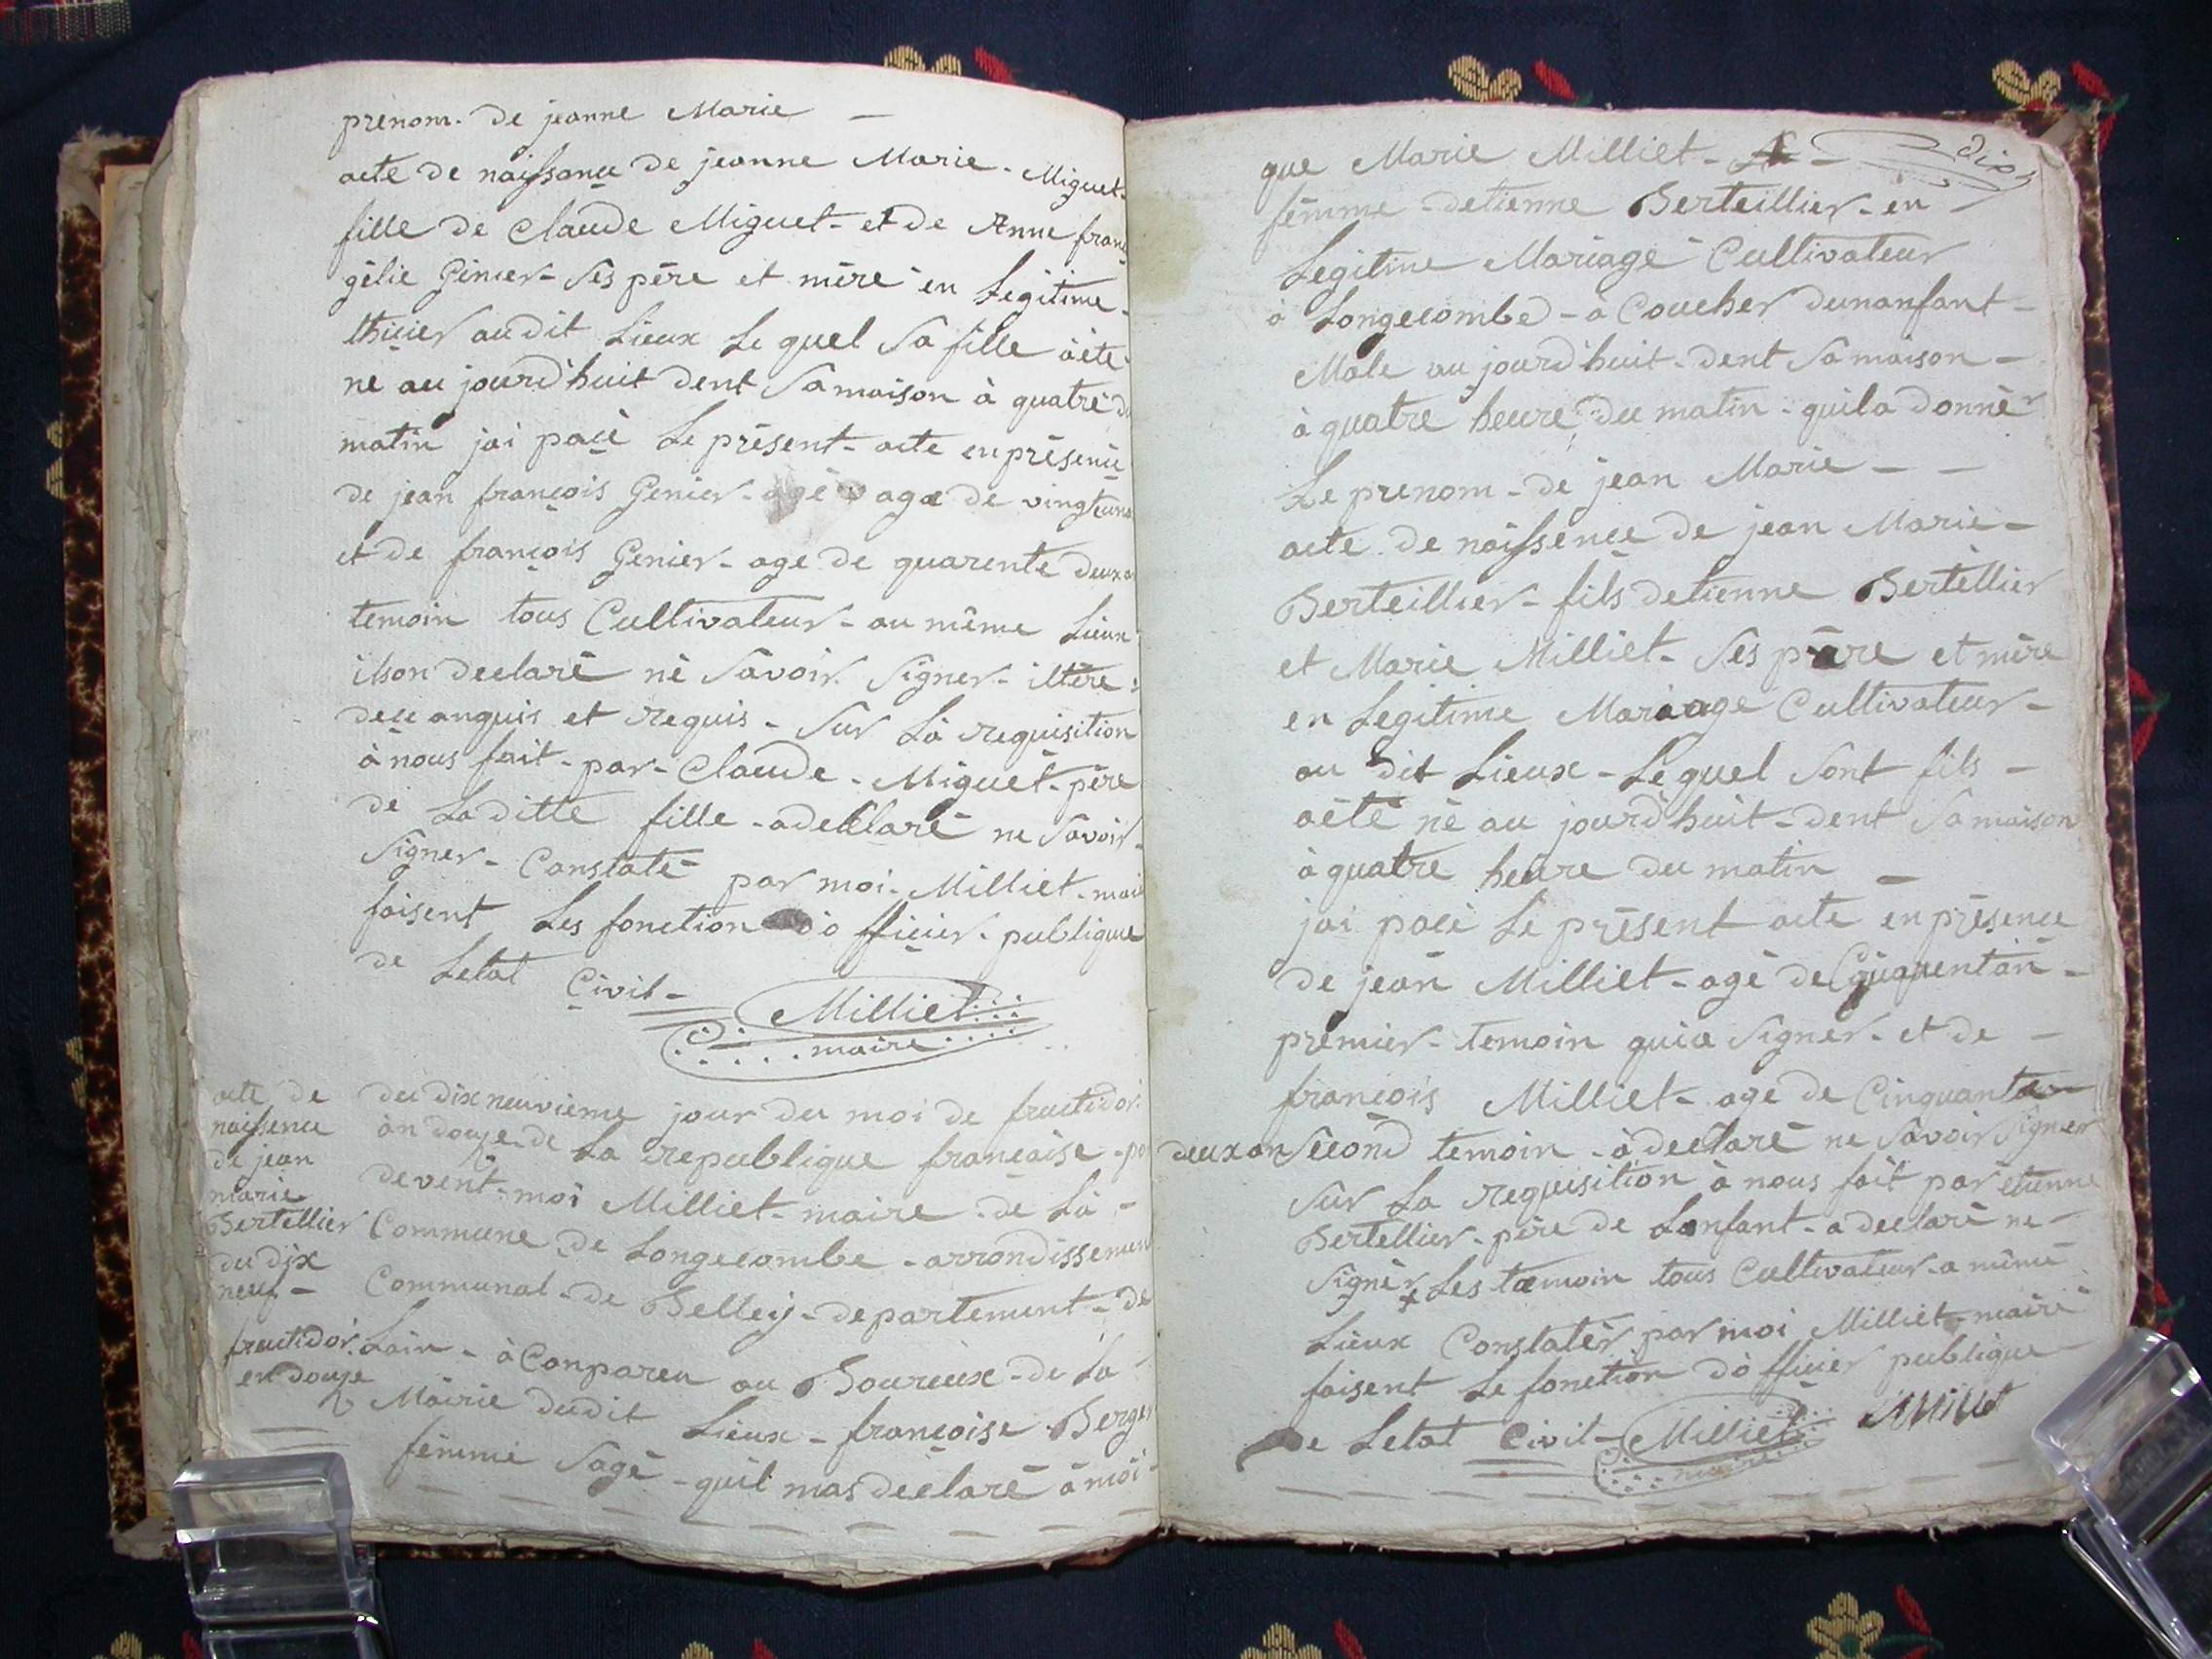 prenom. de jeanne Marie —
acte de naissance de jeanne Marie - Miguet -
fille de Claude Miguet - et de Anne fran
gélie Génier - ses père et mère en Legitime -
thicier audit Lieux Le quel Sa fille àeté
né au jourd'huit dent Samaison à quatre d
matin jai pacé Le présent - acte en présence
de jean françois Genier - agé de vingt
et de françois Genier - age de quarente deux
temoin tous Cultivateur - au même Lieux
ilson declaré né Savoir Signer -
dece anquis et requis - Sur Là requisition
à nous fait - par - Claude - Miguet - père
de Laditte fille - adecllaré ne Savoir -
Signer - Constaté par moi - Milliet - mai
faisent Les fonction dò fficier - publique
de Letat Civil -
Milliet
maire
acte de
naissence
de jean
marie
Bertellier
du dix
neuf -
fructidor
en douze
du dix neuvieme jour du moi de fructidor
àn douze de La republique francaise - par
devent - moi Milliet - maire - de Là -
Commune de Longecombe - arrondissemen
Communal - de Belley - departement - de
Lain - à Conpareu au Boureux - de La
Mairie dudit Lieux - françoise Berger
fèmme Sage - quil mas déclaré à moi -
que Marie Milliet -
femme - detienne Berteillier - en
Legitime Mariage Cultivateur
à Longecombe - à Coucher dunanfant -
Male au jourd'huit - dent Samaison -
à quatre heure du matin - quila donné
Le prenom - de jean Marie - -
acte de naissence de jean Marie -
Berteillier - fils detienne Bertellier
et Marie Milliet - Ses père et mère
en Legitime Mariage Cultivateur -
au dit Lieux - Le quel Sont fils -
aété né au jourd'huit - dent Samaison
à quatre heure du matin -
jai pacé Le présent acte en présence
de jean Milliet - agé de
premier - temoin quia Signer - et de -
francois Milliet - age de Cinquante
deux an Sécond temoin - à declaré ne Savoir Signer
Sur La requisition à nous fait par etienne
Bertellier - père de Lanfant - a declaré ne -
Signèr Les temoin tous Cultivateur - a même
Lieux Constatér par moi Milliet - maire
faisent Le fonction dò fficier publique
de Letat Civil - Milliet
maire